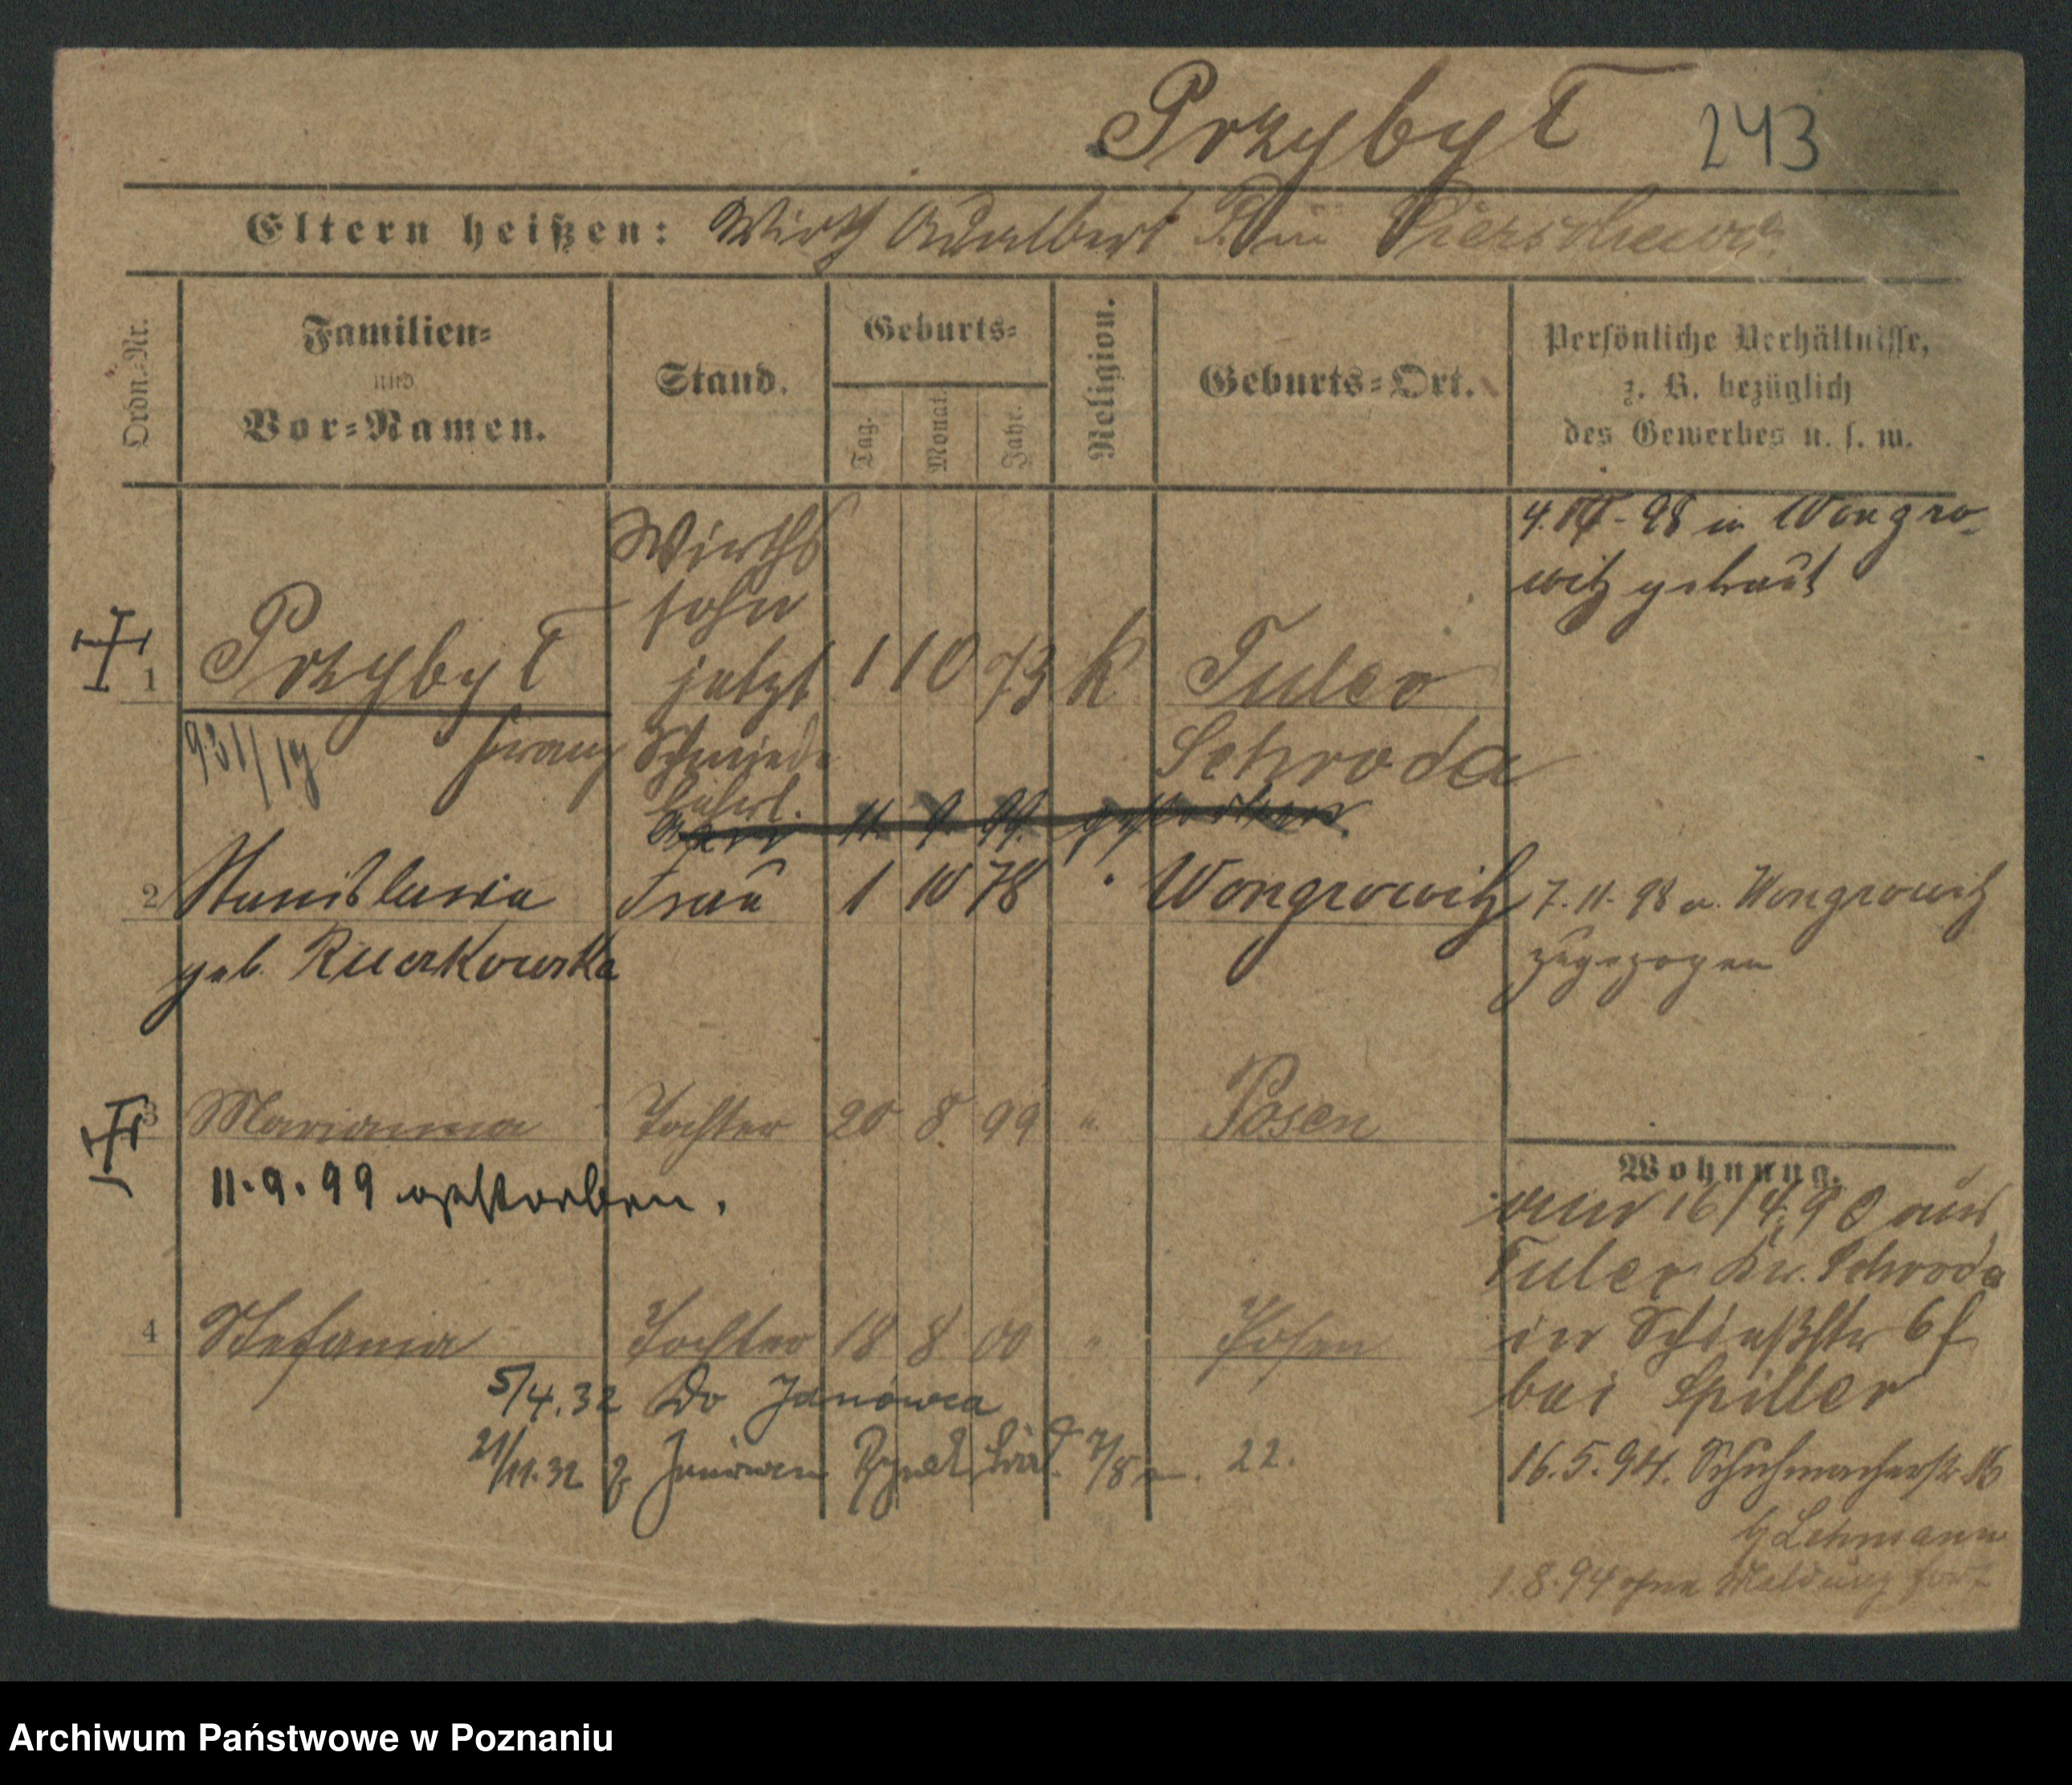 Przybył 243
Eltern heißen: Wirth Adalbert P. in
Ordn.-Nr.
Familien-
und
Vor-Namen.
Stand.
Geburts-
Tag.
Monat.
Jahr.
Religion.
Geburts-Ort.
Persönliche Verhältnisse,
z. B. bezüglich
des Gewerbes u. s. w.
4. - 98 in Wongro-
witz getraut
Wirths
sohn
1 Przybył jetzt 1 10 73 K Tulce
931/14 Franz Schmiede Schroda
11. 9. 99. gestorben.
2 Stanislawa Frau 1 10 78 " Wongrowitz 7. 11. 98 a. Wongrowitz
geb. Ruczkowska zugezogen
3 Marianna Tochter 20 8. 99 " Posen
Wohnung.
11. 9. 99 gestorben.
16/4. 90 aus
Tulce Kr. Schroda
4 Stefania Tochter 18 8 00 " Posen
in Schießstr 6 f
5/4. 32 Do Janówca
bei Spiller
21/11. 32 z Janówca Rynek 7/8 22.
16. 5. 94. Schuhmacherstr 16
b/ Lehmann
1. 8. 94 ohne Meldung fort
Archiwum Państwowe w Poznaniu